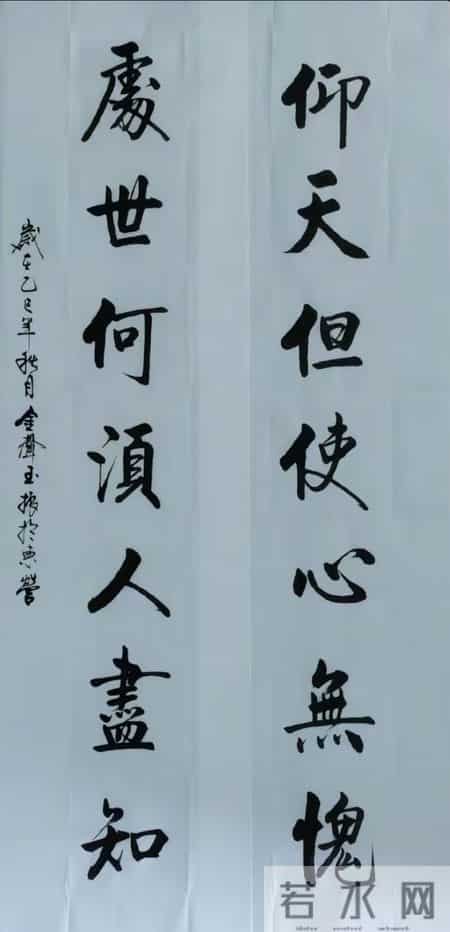 仰天但使心無愧
處世何須人盡知
歲在乙巳年秋月金聲玉振於東營
若水网